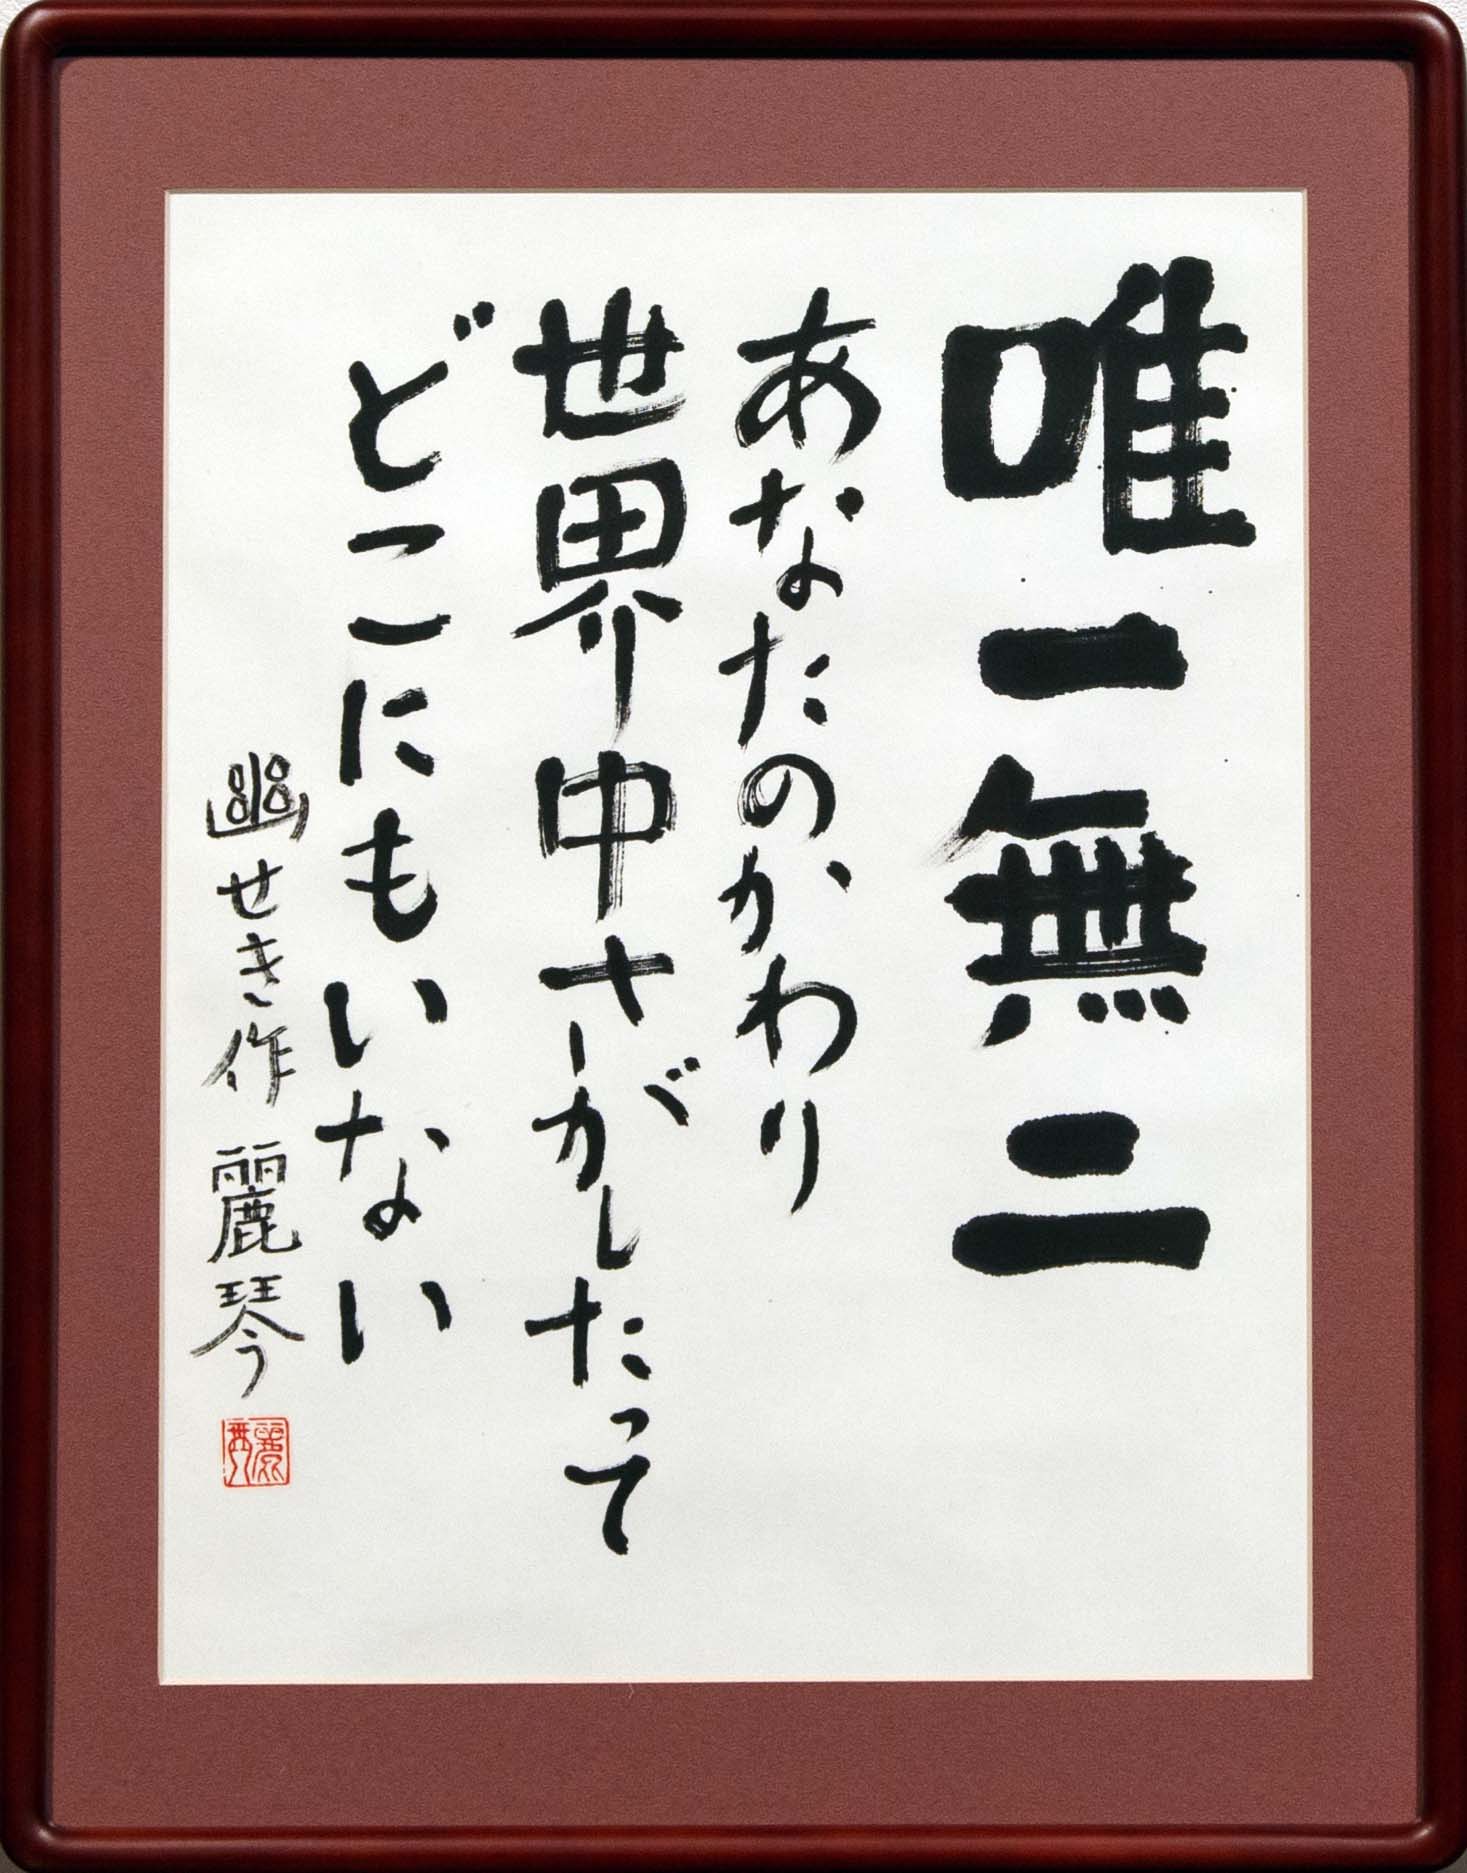 唯一無二
あなたのかわり
世界中さがしたって
どこにもいない
幽せき作 麗琴